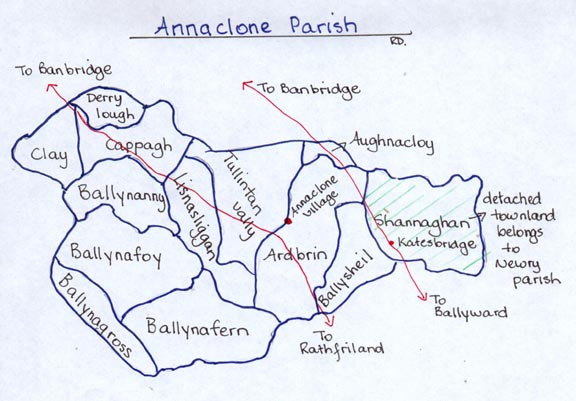 Annaclone Parish
RD.
To Banbridge
To Banbridge
Derry
lough
Aughnacloy
Clay
Cappagh
Tullintan
vally
Lisnasliggan
Ballynanny
Annaclone
village
Shannaghan
Katesbridge
detached
townland
belongs
to
Newry
parish
Ballynafoy
Ardbrin
Ballysheil
Ballynagross
Ballynafern
To
Rathfriland
To
Ballyward